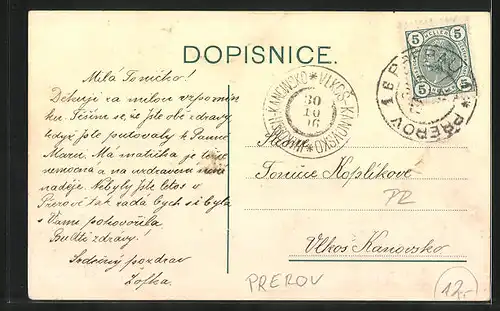 DOPISNICE.
5 HELLER 5
5 5
PŘEROV 1
VLKOŠ-KANOVSKO * VLKOŠ-KANOVSKO *
30
10
06
Milá Toničko!
Děkuji za milou vzpomín
ku. Těším se, že jste obě zdrávy,
když jste putovaly k Panně
Marii. Má matička je
nemocná a na uzdravení není
naděje. Nebyly jste letos v
Přerově tak ráda bych si byla
s Vámi pohovořila
Buďte zdrávy!
Srdečný pozdrav
Žofka.
Slečna
Tonice Koplíkové
PZ
Vlkoš Kanovsko
PREROV
12,-